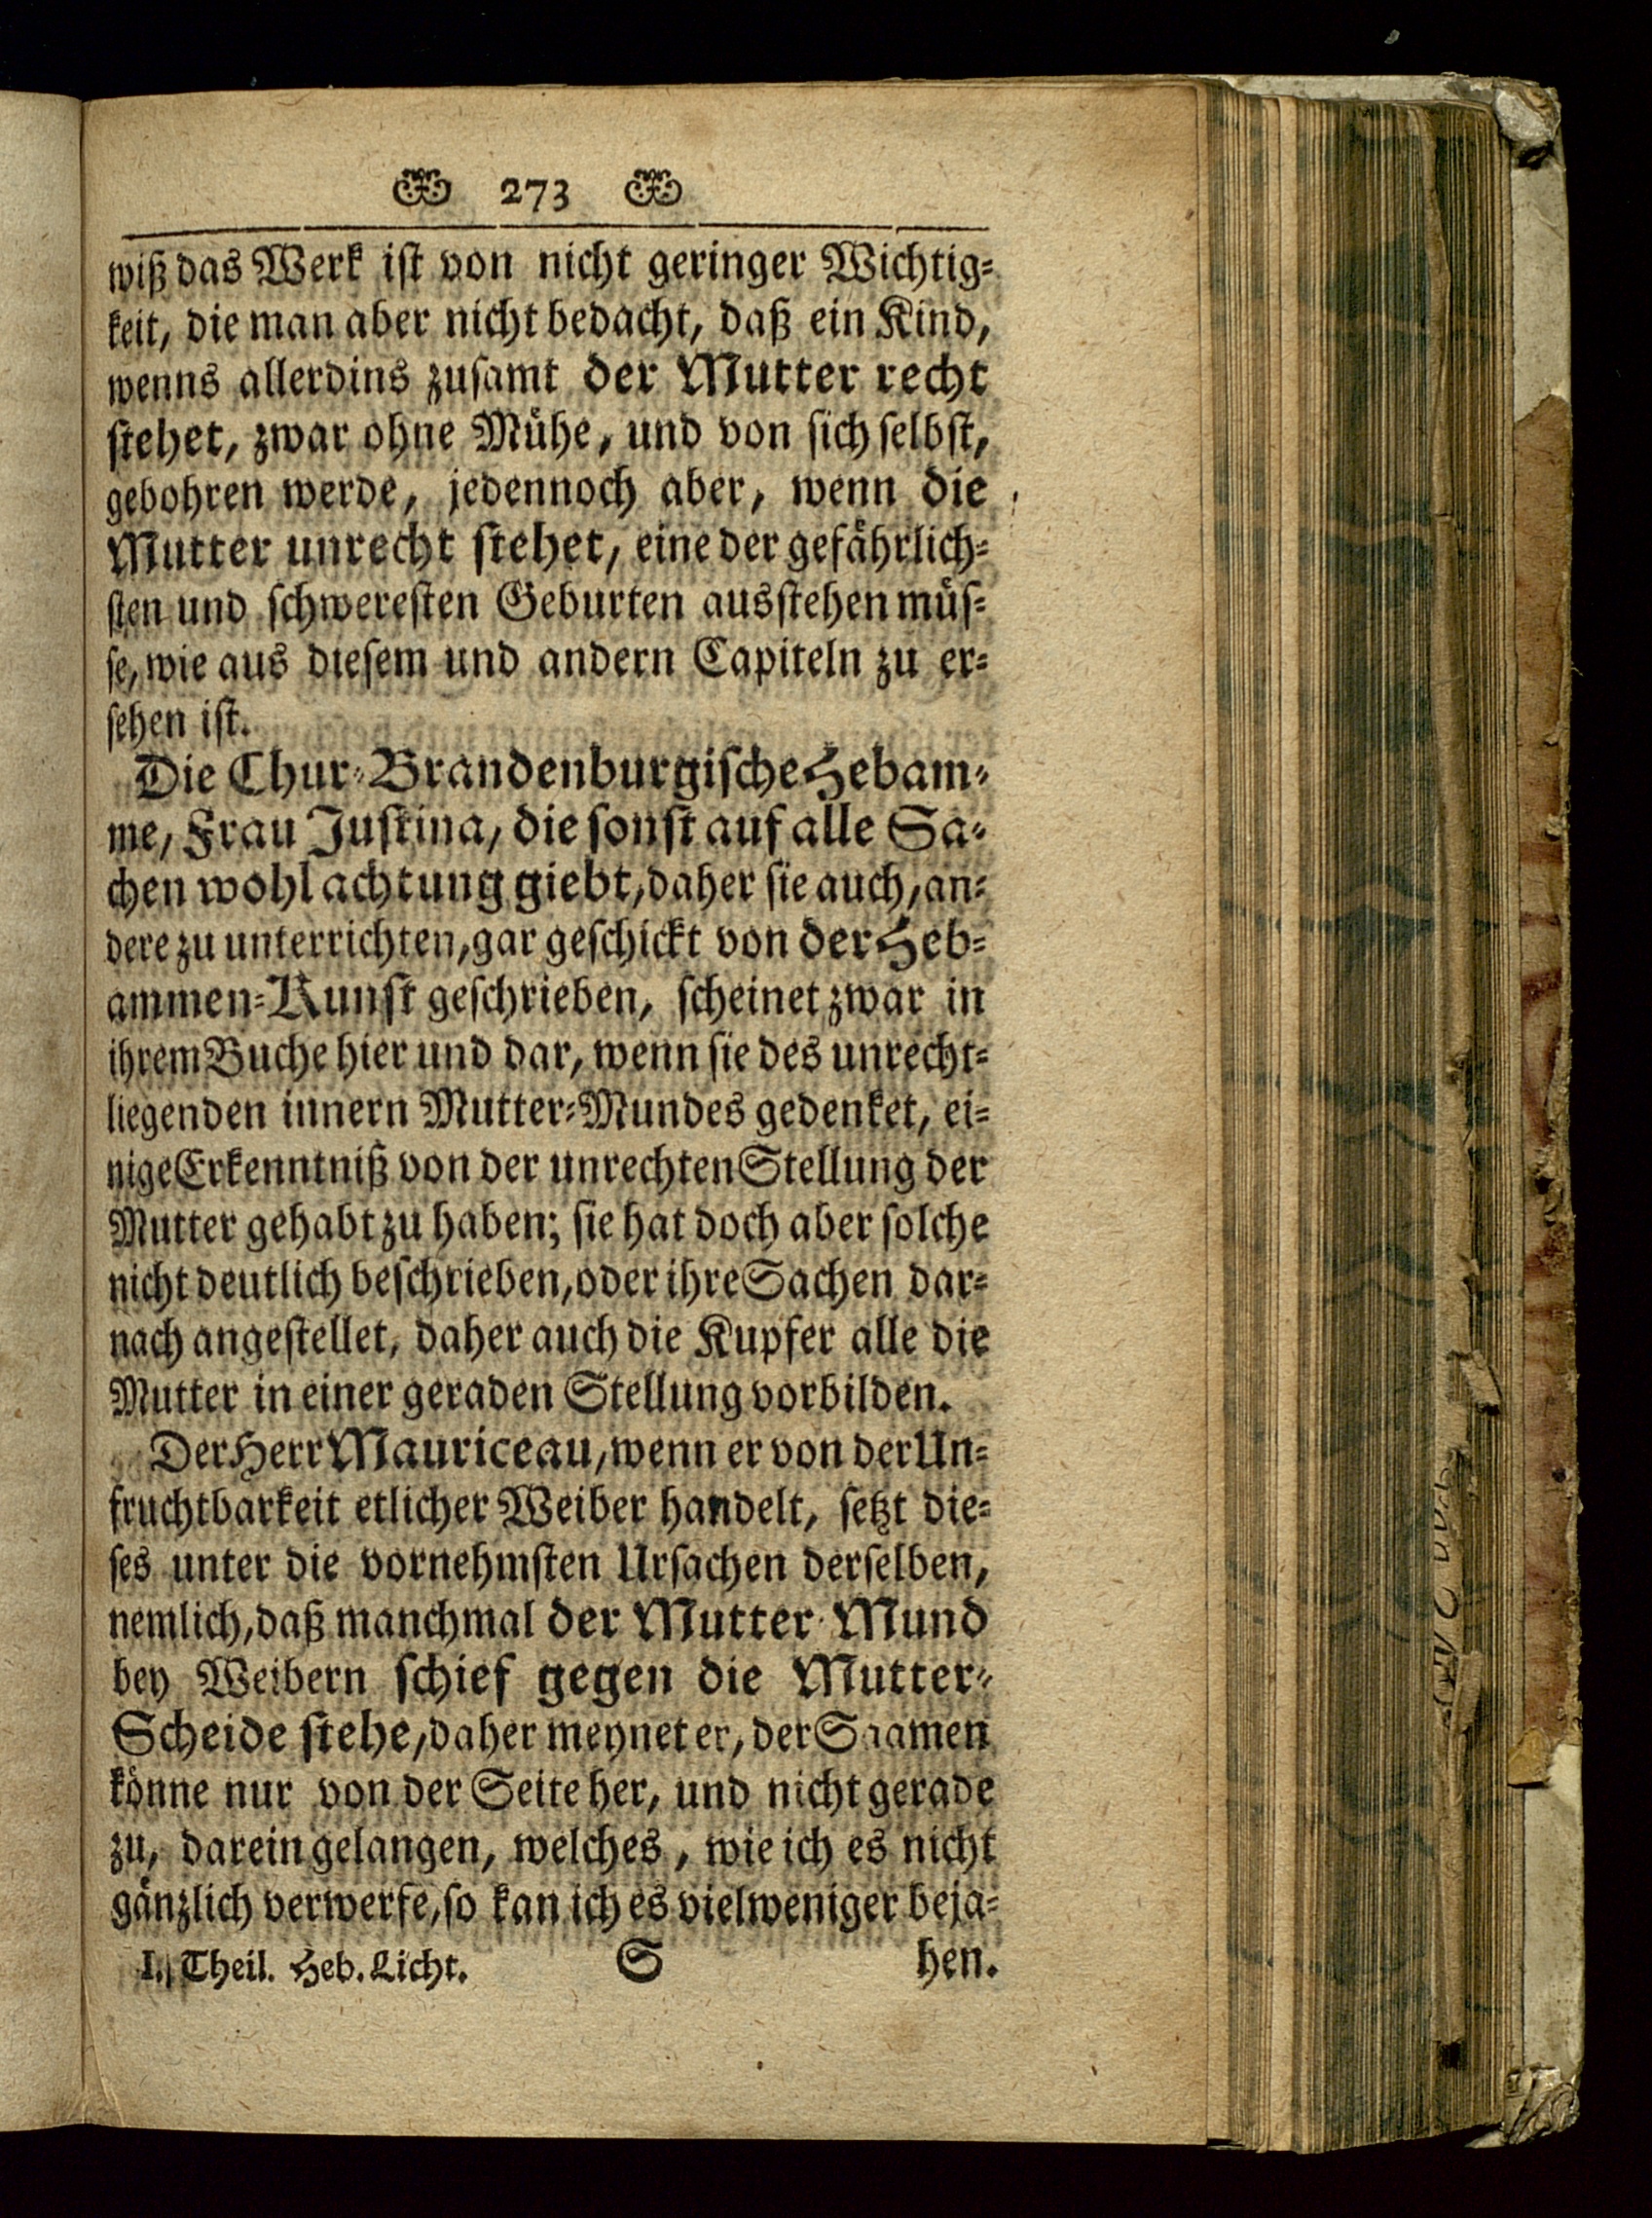 273
wiß das Werk iſt von nicht geringer Wichtig⸗
keit, die man aber nicht bedacht, daß ein Kind,
wenns allerdins zuſamt der Mutter recht
ſtehet, zwar ohne Mühe, und von ſich ſelbſt,
gebohren werde, jedennoch aber, wenn die
Mutter unrecht ſtehet, eine der gefährlich⸗
ſten und ſchwereſten Geburten ausſtehen müſ⸗
ſe, wie aus dieſem und andern Capiteln zu er⸗
ſehen iſt.
Die Chur⸗Brandenburgiſche Hebam⸗
me, Frau Juſtina, die ſonſt auf alle Sa⸗
chen wohl achtung giebt, daher ſie auch, an⸗
dere zu unterrichten, gar geſchickt von der Heb⸗
ammen⸗Kunſt geſchrieben, ſcheinet zwar in
ihrem Buche hier und dar, wenn ſie des unrecht⸗
liegenden innern Mutter⸗Mundes gedenket, ei⸗
nige Erkenntniß von der unrechten Stellung der
Mutter gehabt zu haben; ſie hat doch aber ſolche
nicht deutlich beſchrieben, oder ihre Sachen dar⸗
nach angeſtellet, daher auch die Kupfer alle die
Mutter in einer geraden Stellung vorbilden.
Der Herr Mauriceau, wenn er von der Un⸗
fruchtbarkeit etlicher Weiber handelt, ſetzt die⸗
ſes unter die vornehmſten Urſachen derſelben,
nemlich, daß manchmal der Mutter Mund
bey Weibern ſchief gegen die Mutter⸗
Scheide ſtehe, daher meynet er, der Saamen
könne nur von der Seite her, und nicht gerade
zu, darein gelangen, welches, wie ich es nicht
gänzlich verwerfe, ſo kan ich es vielweniger beja⸗
I. Theil. Heb. Licht. S hen.